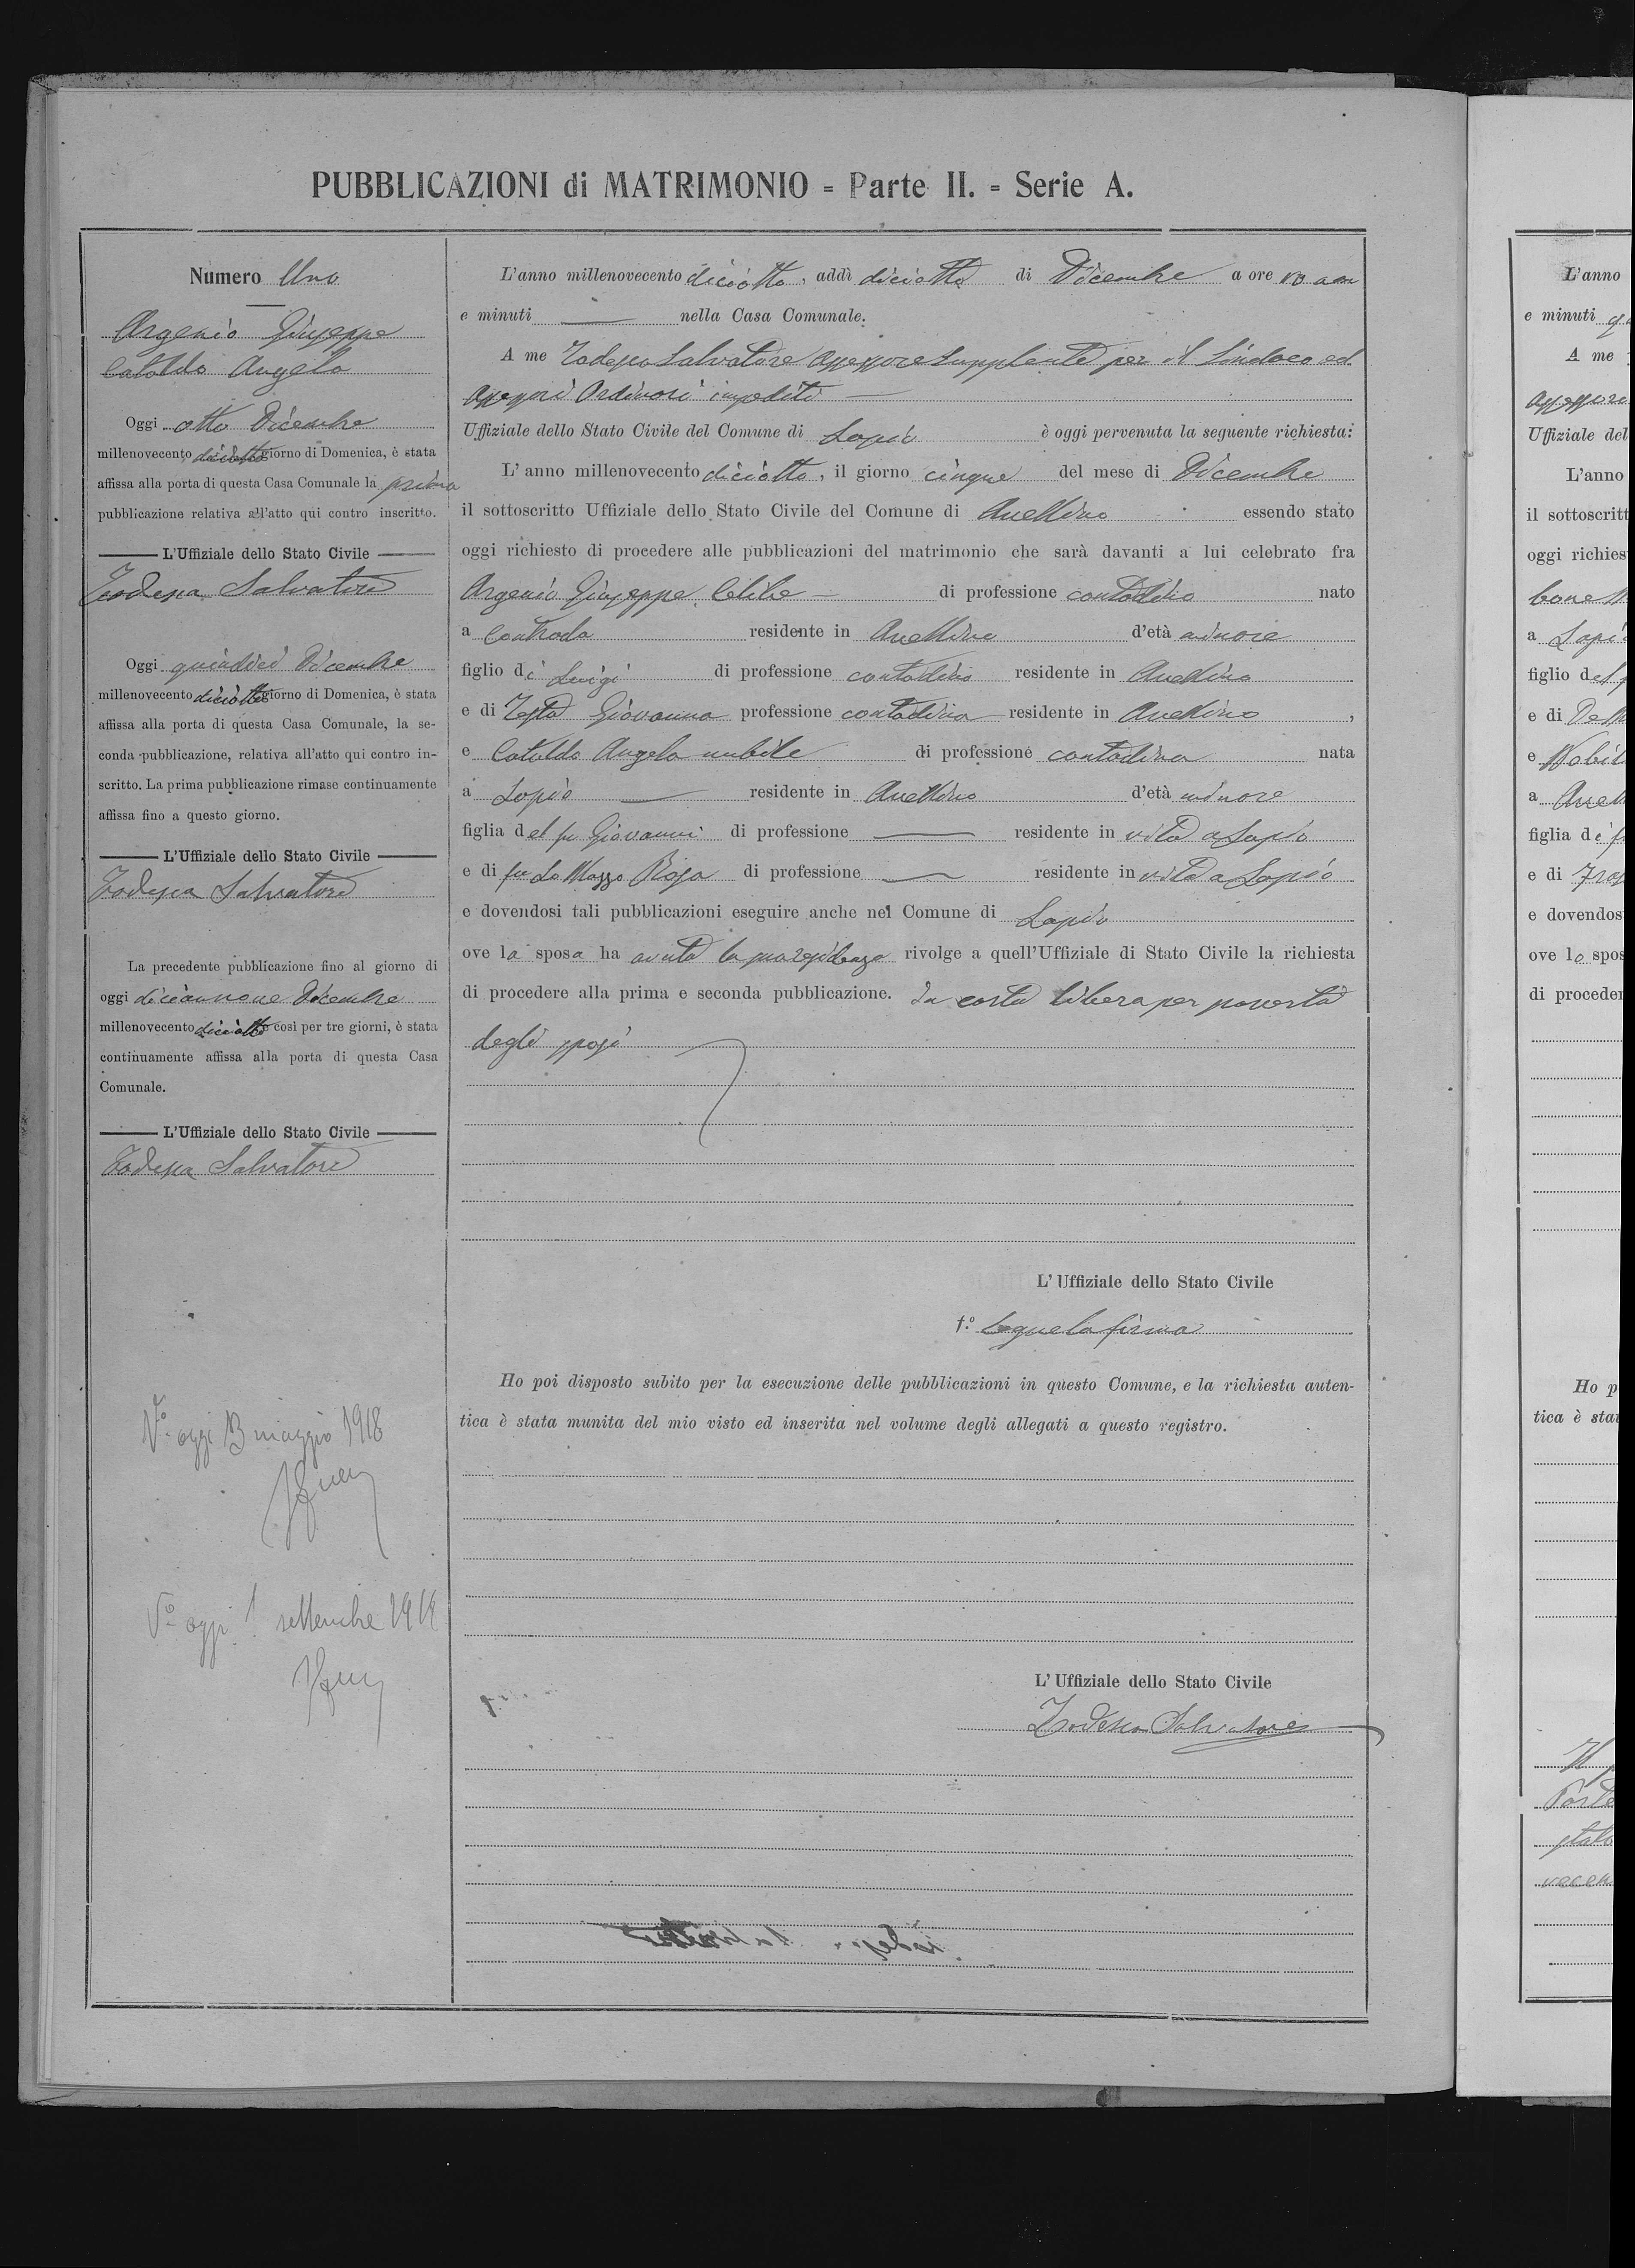 PUBBLICAZIONI di MATRIMONIO = Parte II. = Serie A.
Numero Uno
Argenio Giuseppe
Cataldo Angela
Oggi otto Dicembre
millenovecento diciotto giorno di Domenica, è stata
affissa alla porta di questa Casa Comunale la prima
pubblicazione relativa all'atto qui contro inscritto.
L'Uffiziale dello Stato Civile
Todesca Salvatore
Oggi quindici Dicembre
millenovecento diciotto giorno di Domenica, è stata
affissa alla porta di questa Casa Comunale, la se-
conda pubblicazione, relativa all'atto qui contro in-
scritto. La prima pubblicazione rimase continuamente
affissa fino a questo giorno.
L'Uffiziale dello Stato Civile
Todesca Salvatore
La precedente pubblicazione fino al giorno di
oggi diciannove Dicembre
millenovecento diciotto così per tre giorni, è stata
continuamente affissa alla porta di questa Casa
Comunale.
L'Uffiziale dello Stato Civile
Todesca Salvatore
V° oggi 13 maggio 1918
V° oggi 1 settembre 1919
L'anno millenovecento diciotto, addì diciotto di Dicembre a ore 10 am
e minuti — nella Casa Comunale.
A me Todesca Salvatore Assessore Supplente per il Sindaco ed
Assessori Ordinari impediti —
Uffiziale dello Stato Civile del Comune di Lapio è oggi pervenuta la seguente richiesta:
L'anno millenovecento diciotto, il giorno cinque del mese di Dicembre
il sottoscritto Uffiziale dello Stato Civile del Comune di Avellino essendo stato
oggi richiesto di procedere alle pubblicazioni del matrimonio che sarà davanti a lui celebrato fra
Argenio Giuseppe Celibe — di professione contadino nato
a Contrada residente in Avellino d'età minore
figlio di Luigi di professione contadino residente in Avellino
e di Testa Giovanna professione contadina residente in Avellino,
e Cataldo Angela nubile di professione contadina nata
a Lapio — residente in Avellino d'età minore
figlia del fu Giovanni di professione — residente in vita a Lapio
e di fu Lo Mazzo Rosa di professione — residente in vita a Lapio
e dovendosi tali pubblicazioni eseguire anche nel Comune di Lapio
ove la sposa ha avuta la sua residenza rivolge a quell'Uffiziale di Stato Civile la richiesta
di procedere alla prima e seconda pubblicazione. In carta libera per povertà
degli sposi
L'Uffiziale dello Stato Civile
f.° Segue la firma
Ho poi disposto subito per la esecuzione delle pubblicazioni in questo Comune, e la richiesta auten-
tica è stata munita del mio visto ed inserita nel volume degli allegati a questo registro.
L'Uffiziale dello Stato Civile
Todesca Salvatore
L'anno
e minuti
A me
Uffiziale del
L'anno
il sottoscritt
oggi richies
a Lapi
figlio del
e di
e Nobil
a Avel
figlia di
e di
e dovendos
ove lo spos
di proceder
Ho p
tica è stat